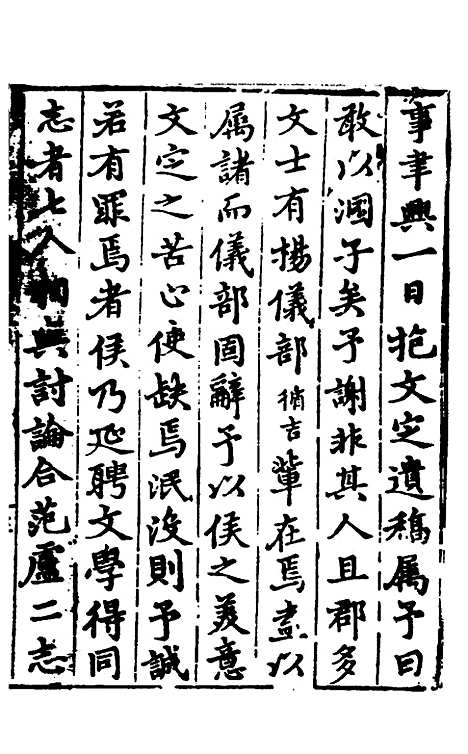 事聿興一日抱文定遺稿属予曰
敢以溷子矣予謝非其人且郡多
文士有楊儀部循吉輩在焉盍以
属諸而儀部固辭予以侯之美意
文定之苦心使缺焉泯没則予誠
若有罪焉者侯乃延聘文學得同
志者七人相與討論合范盧二志